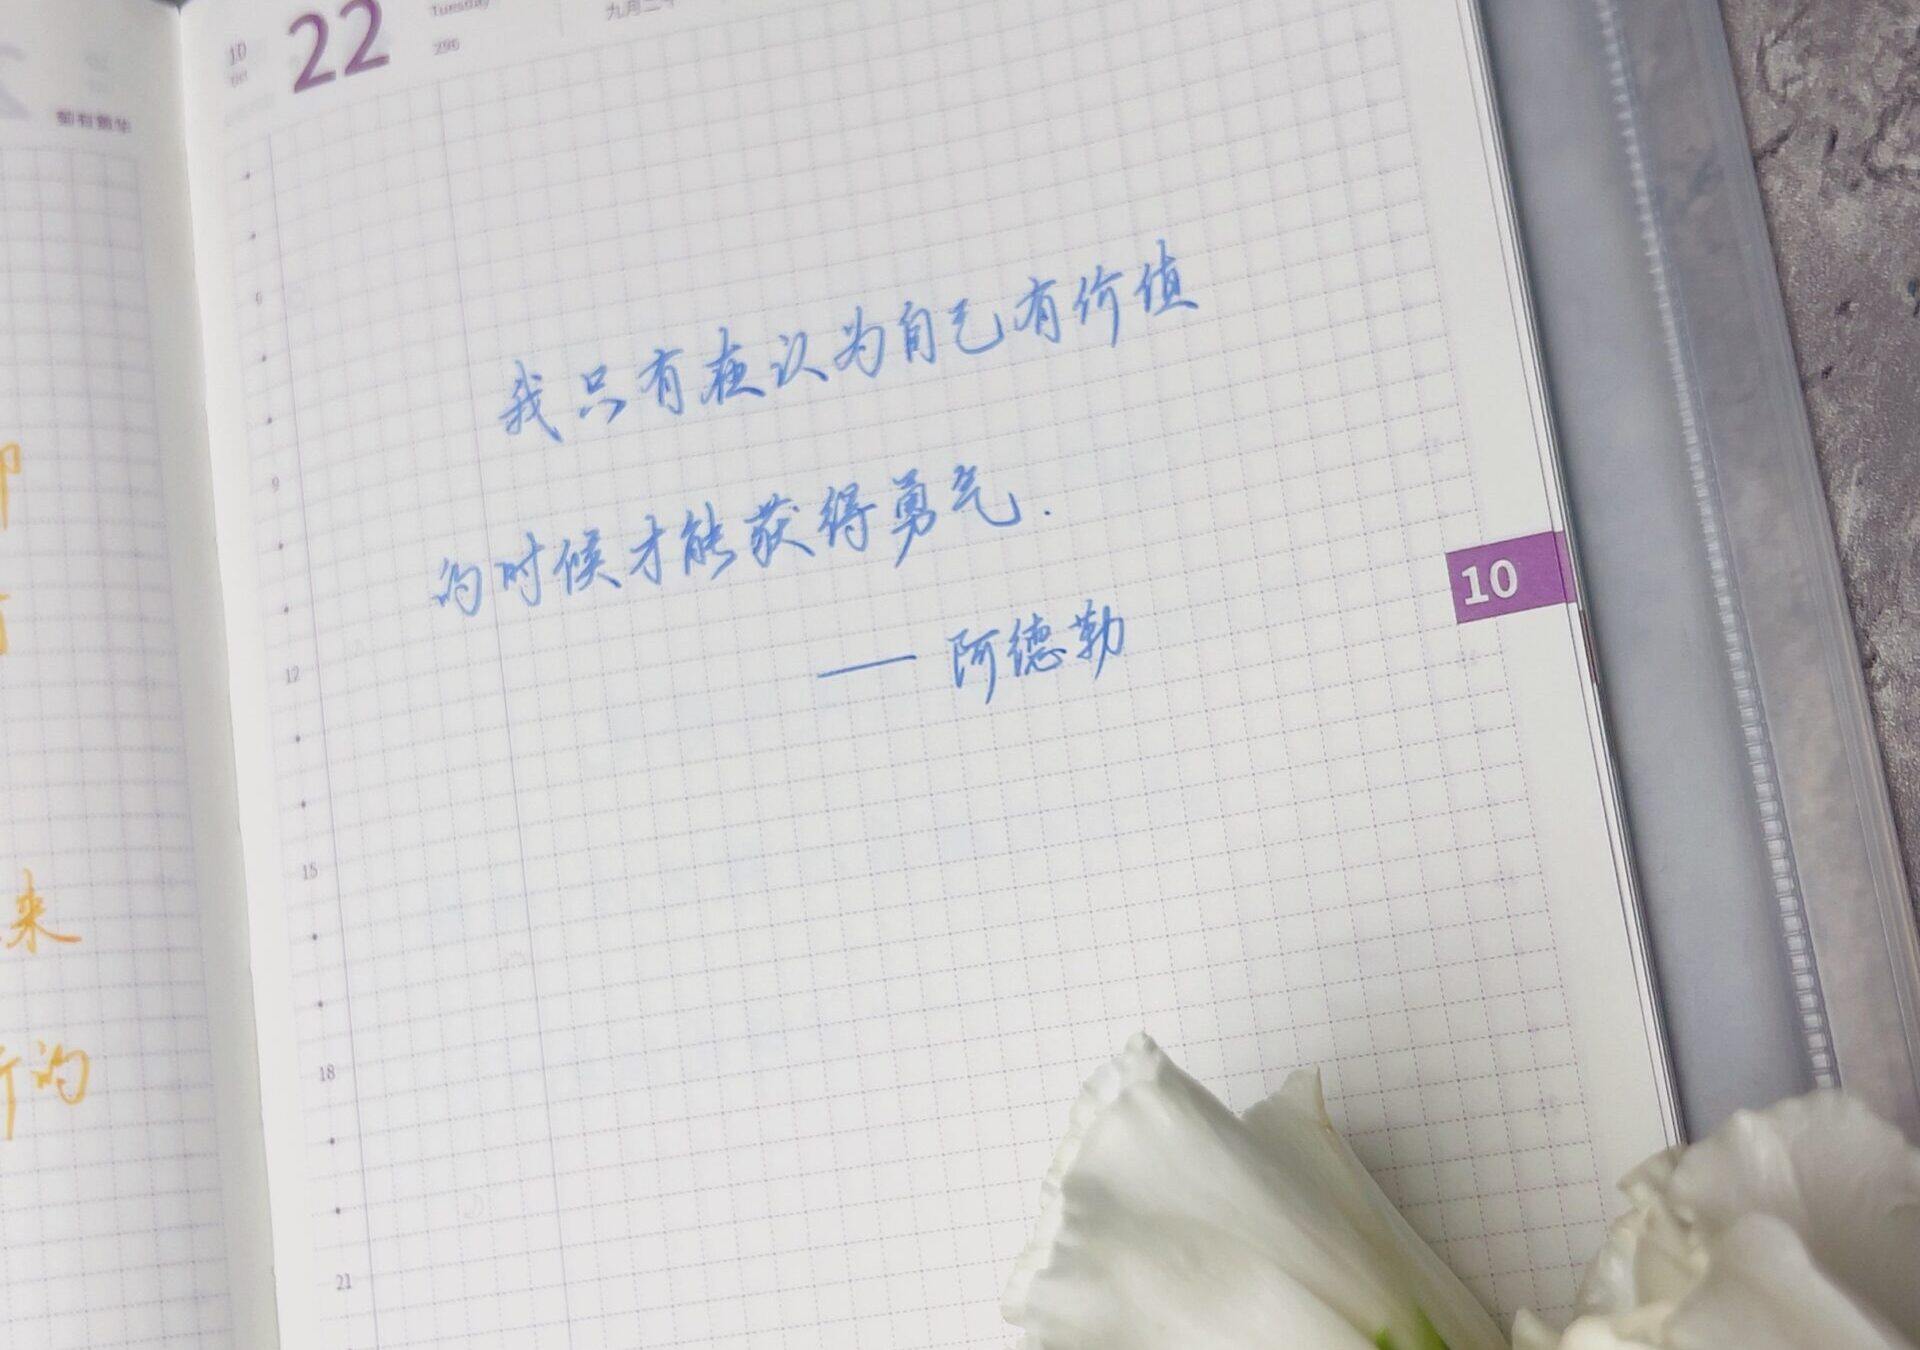 10
22
Tuesday
296
九月二十
我只有在认为自己有价值
的时候才能获得勇气.
—— 阿德勒
10
6
9
12
15
18
21
来
的